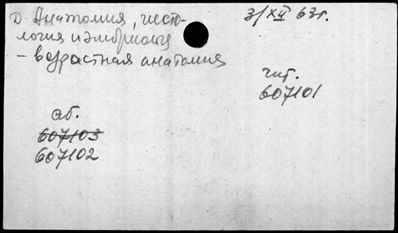 Д. Анатомия, гисто-
логия и эмбриолог
– возрастная анатомия
3/XII 63г.
чит.
607101
аб.
607103
607102